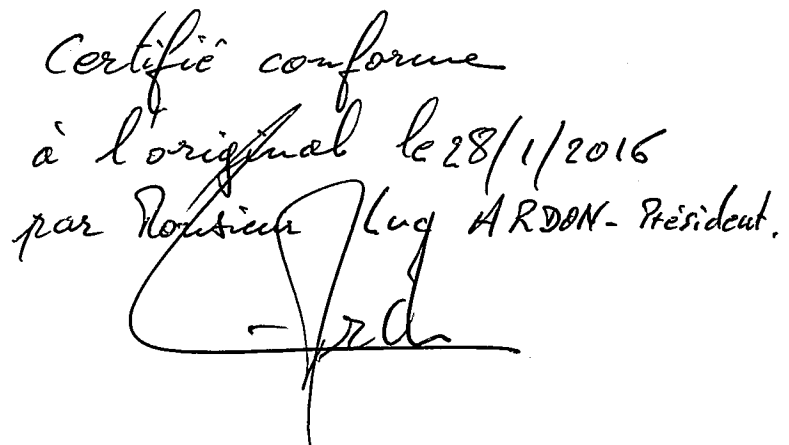 Certifié conforme
à l'original le 28/1/2016
par Monsieur Luc ARDON - Président.